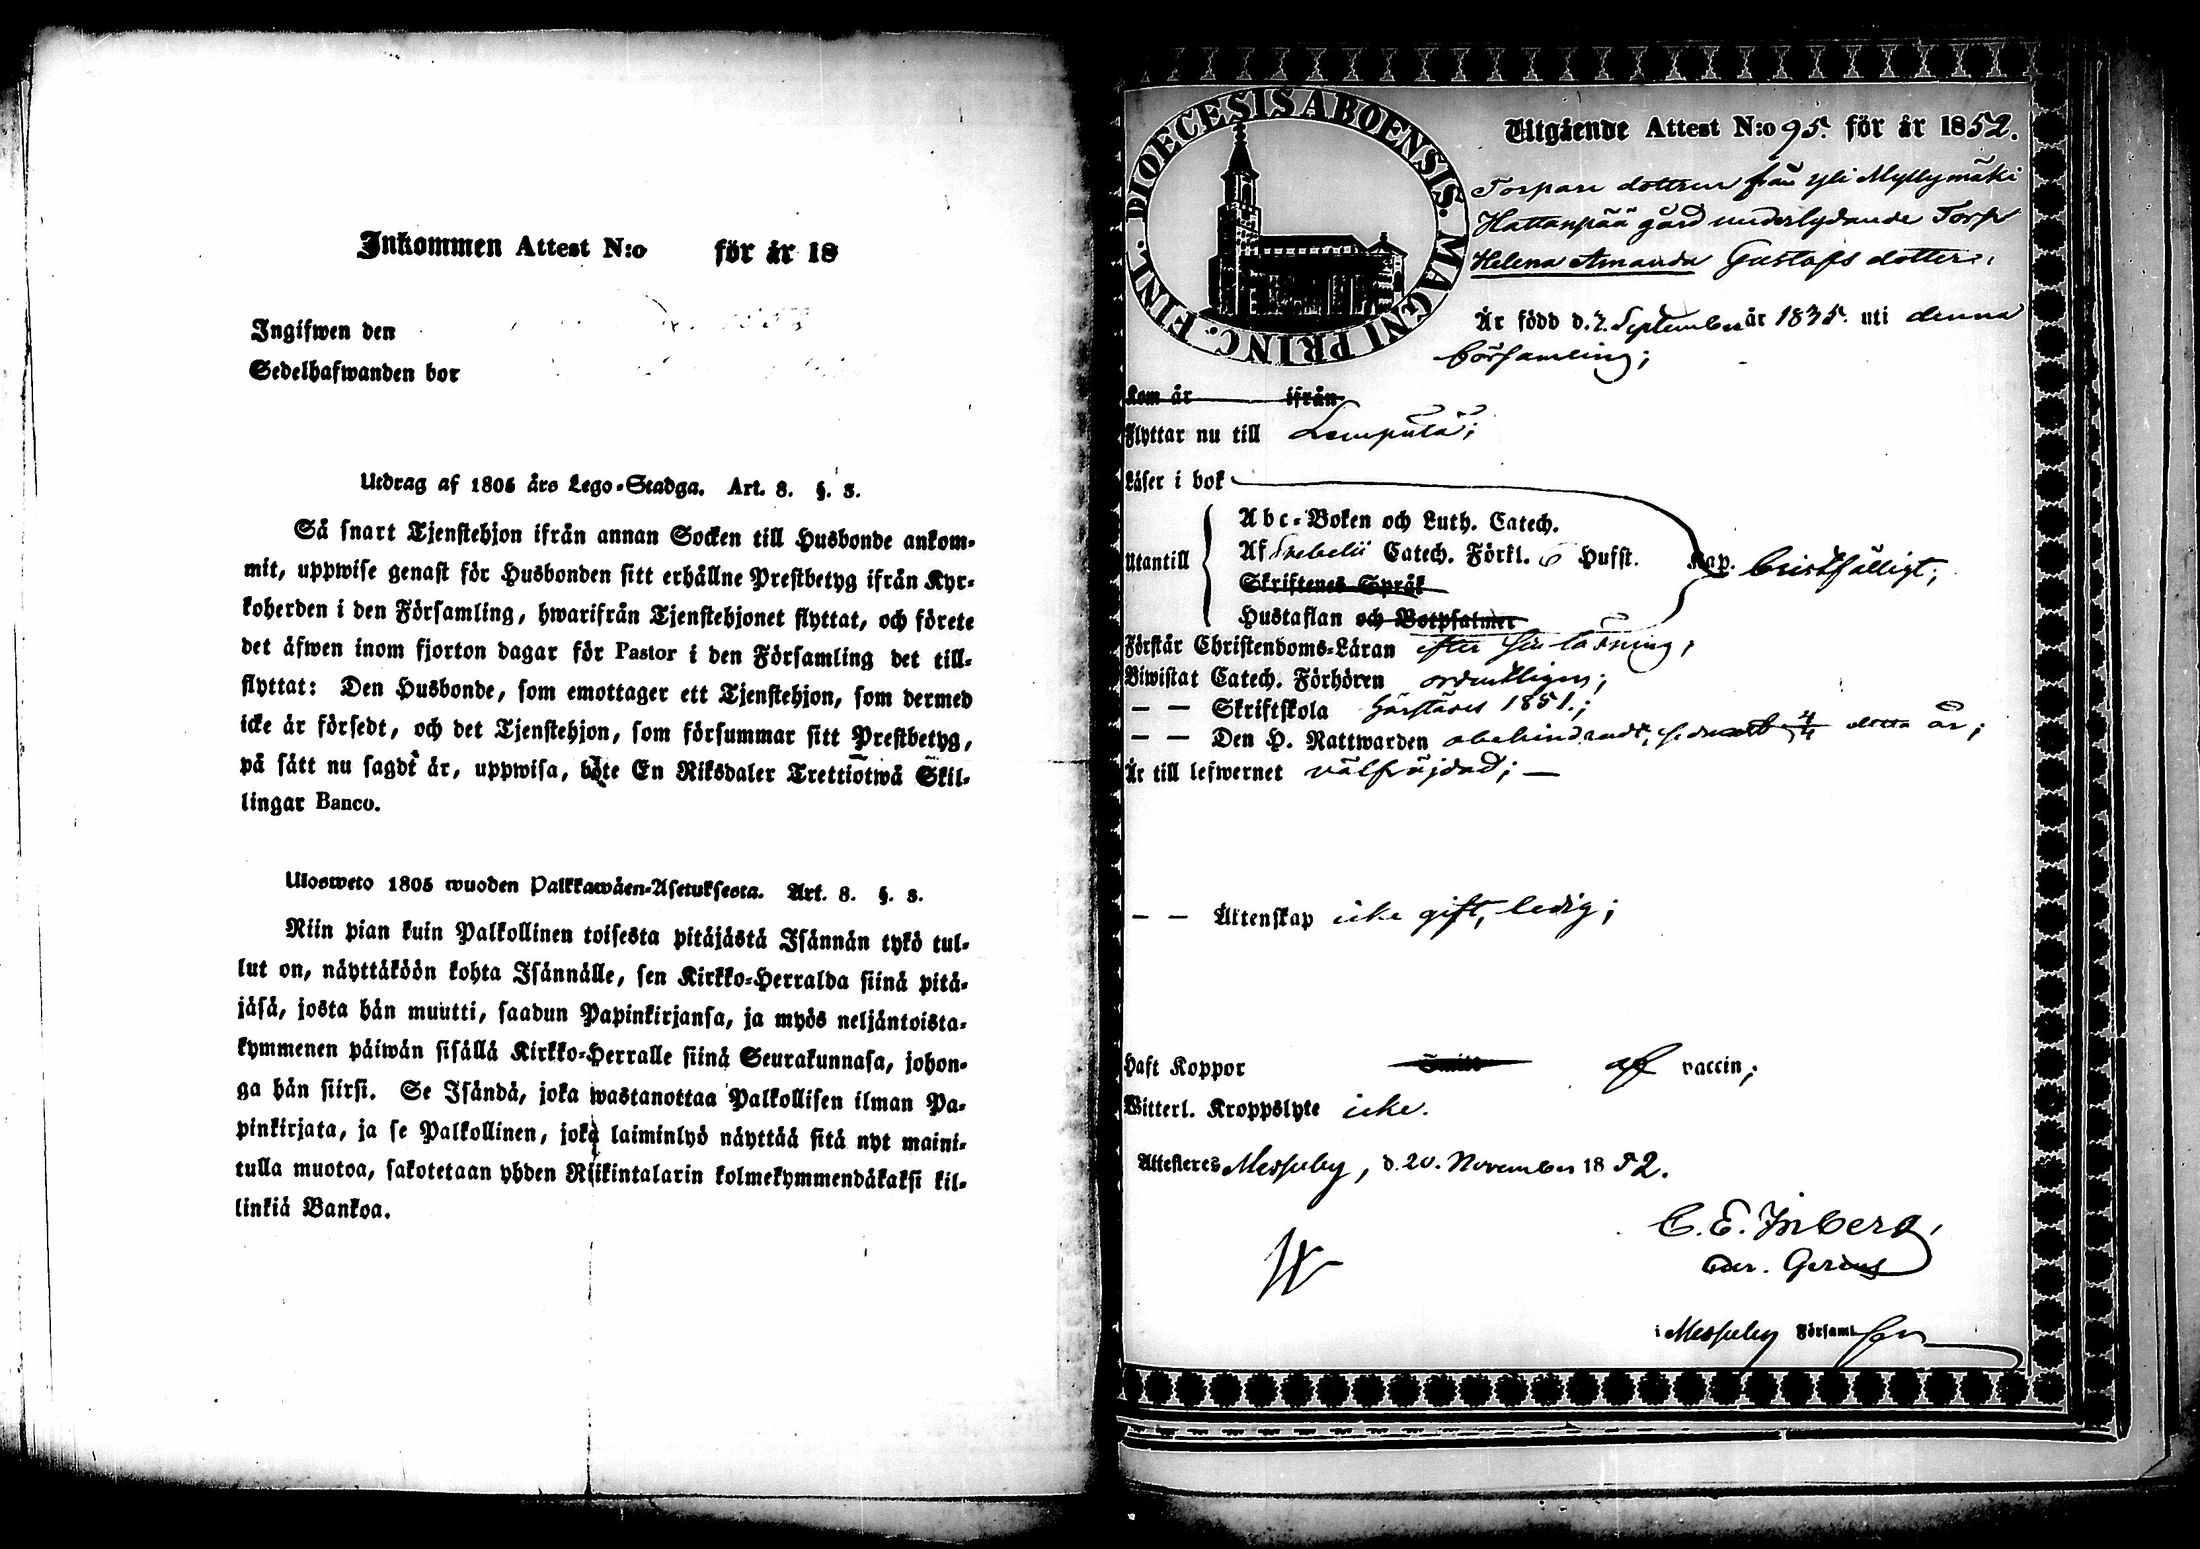 Inkommen Attest N:o för år 18
Ingifwen den
Sedelhafwanden bor
Utdrag af 1805 års Lego-Stadga. Art. 8. §. 3.
Så snart Tjenstehjon ifrån annan Socken till Husbonde ankom-
mit, uppwise genast för Husbonden sitt erhållne Prestbetyg ifrån Kyr-
koherden i den Församling, hwarifrån Tjenstehjonet flyttat, och förete
det äfwen inom fjorton dagar för Pastor i den Församling det till-
flyttat: Den Husbonde, som emottager ett Tjenstehjon, som dermed
icke är försedt, och det Tjenstehjon, som försummar sitt Prestbetyg,
på sätt nu sagdt är, uppwisa, böte En Riksdaler Trettiotwå Skil-
lingar Banco.
Ulosweto 1805 wuoden Palkkawäen-Asetuksesta. Art. 8. §. 3.
Niin pian kuin Palkollinen toisesta pitäjästä Isännän tykö tul-
lut on, näyttäköön kohta Isännälle, sen Kirkko-Herralda siinä pitä-
jäsä, josta hän muutti, saadun Papinkirjansa, ja myös neljäntoista-
kymmenen päiwän sisällä Kirkko-Herralle siinä Seurakunnasa, johon-
ga hän siirsi. Se Isändä, joka wastanottaa Palkollisen ilman Pa-
pinkirjata, ja se Palkollinen, joka laiminlyö näyttää sitä nyt maini-
tulla muotoa, sakotetaan yhden Riikintalarin kolmekymmendäkaksi kil-
linkiä Bankoa.
DIOECESIS ABOENSIS. MAGNI PRINC. FINL.
Utgående Attest N:o 95. för år 1852.
Torpare dottren från Yli Myllymäki
Hattanpää gård underlydande Torp
Helena Amanda Gustafs dotter,
Är född d. 7. September år 1835. uti denna
Församling;
Kom år ifrån
Flyttar nu till Lempälä;
Läser i bok
Utantill
Abc-Boken och Luth. Catech.
Af Svebelii Catech. Förkl. 6 Hufst. Kap. bristfälligt;
Skriftenes Språk
Hustaflan och Botpsalmer
Förstår Christendoms-Läran efter sin läsning,
Biwistat Catech. Förhören ordentligen;
— — Skriftskola härstädes 1851.;
— — Den H. Nattwarden obehindradt, sednast 4/4 detta år;
Är till lefwernet välfräjdad; —
— — Äktenskap icke gift, ledig;
Haft Koppor af vaccin;
Witterl. Kroppslyte icke.
Attesteres Messuby, d. 20. November 1852.
C. E. Inberg,
Cur. Gerens
i Messuby Församl